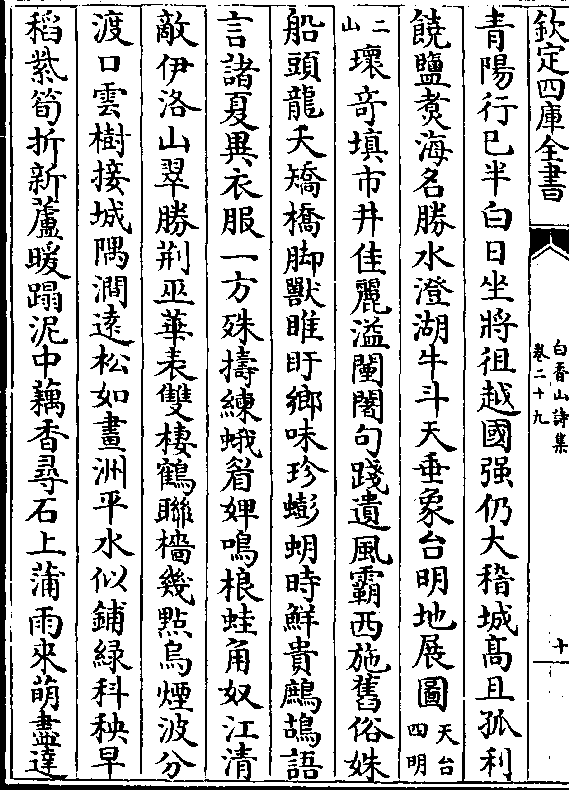 欽定四庫全書
白香山詩集
卷二十九
十
青陽行已半白日坐將徂越國强仍大稽城髙且孤利
饒鹽煑海名勝水澄湖牛斗天垂象台明地展圖天台四明
二山瓌竒填市井佳麗溢闉闍句踐遺風霸西施舊俗姝
船頭龍夭矯橋脚獸睢盱鄉味珍蟛蚏時鮮貴鷓鴣語
言諸夏異衣服一方殊擣練蛾眉婢鳴桹蛙角奴江清
敵伊洛山翠勝荆巫華表雙棲鶴聯檣幾點烏煙波分
渡口雲樹接城隅澗逺松如畫洲平水似鋪綠科秧早
稻紫筍折新蘆暖蹋泥中藕香尋石上蒲雨來萌盡達